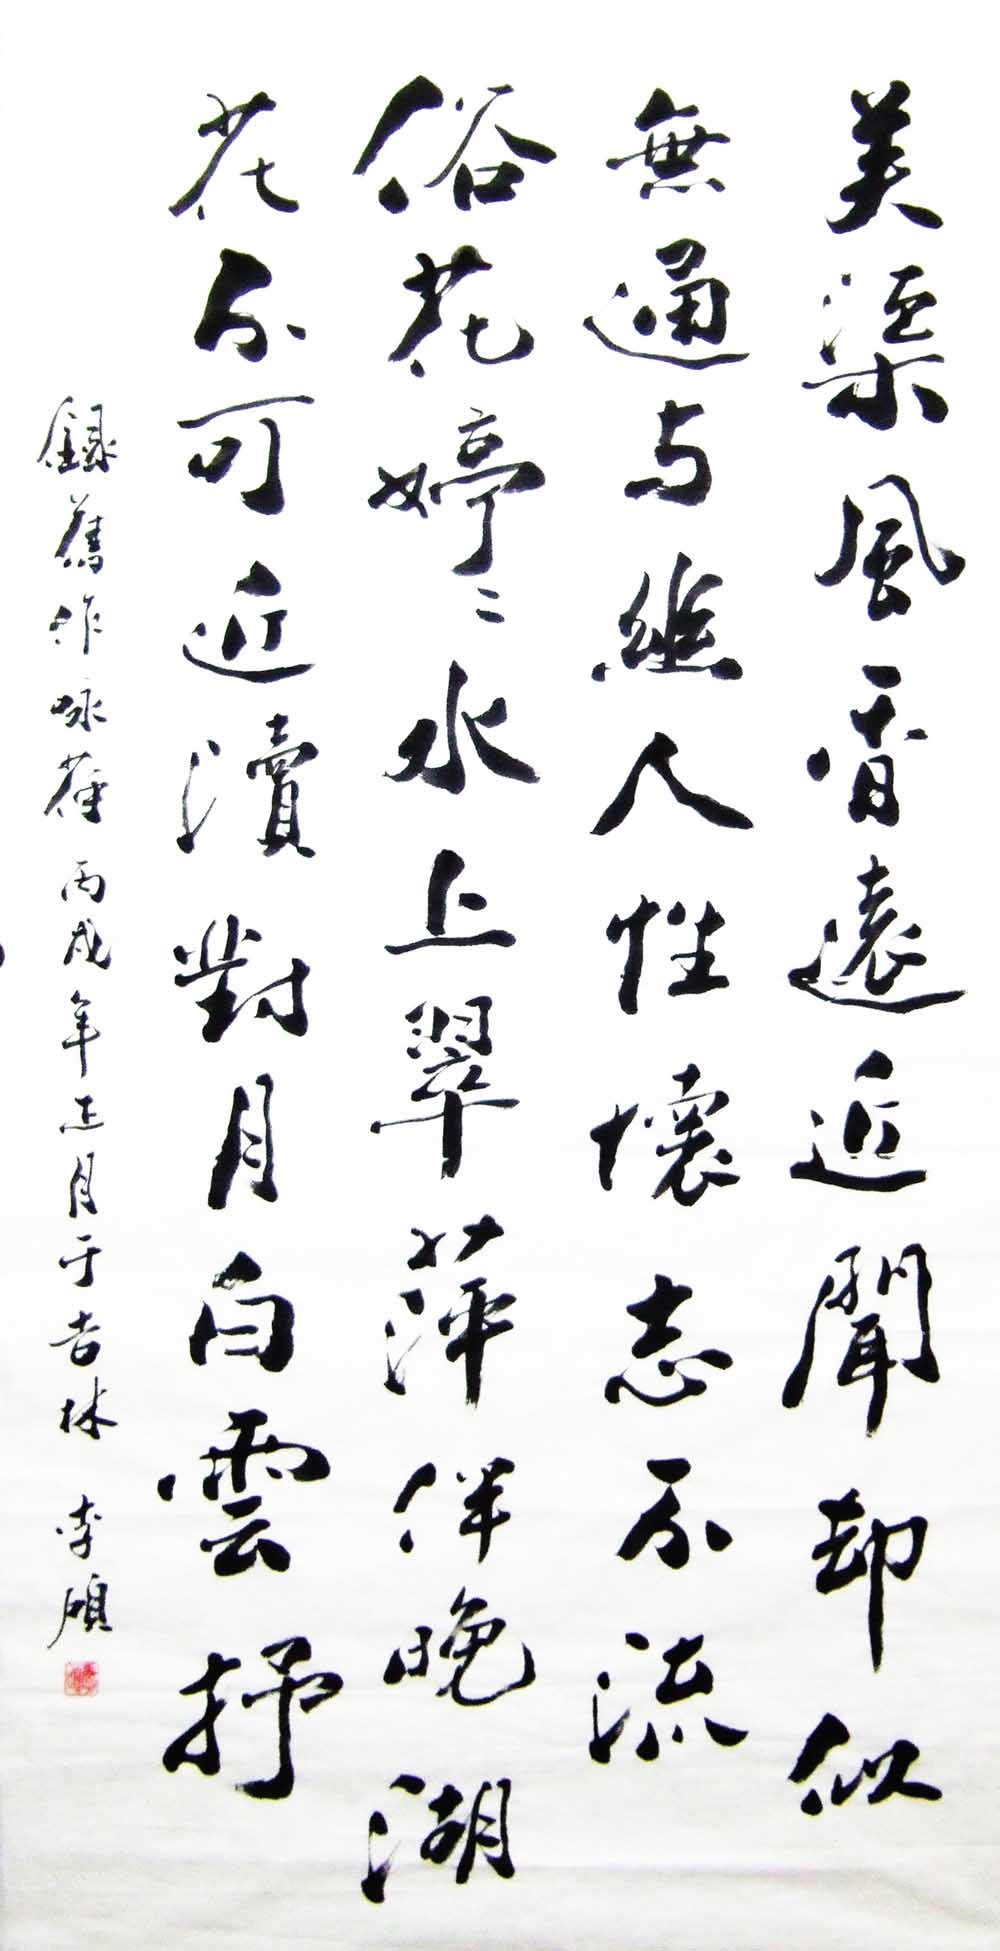 芙渠風香遠近聞却似
無通与人性懷志不流
俗花婷〻水上翠萍伴晚湖
花不可近瀆對月白雲抒
録舊作咏荷 丙戌年正月于吉林 李碩